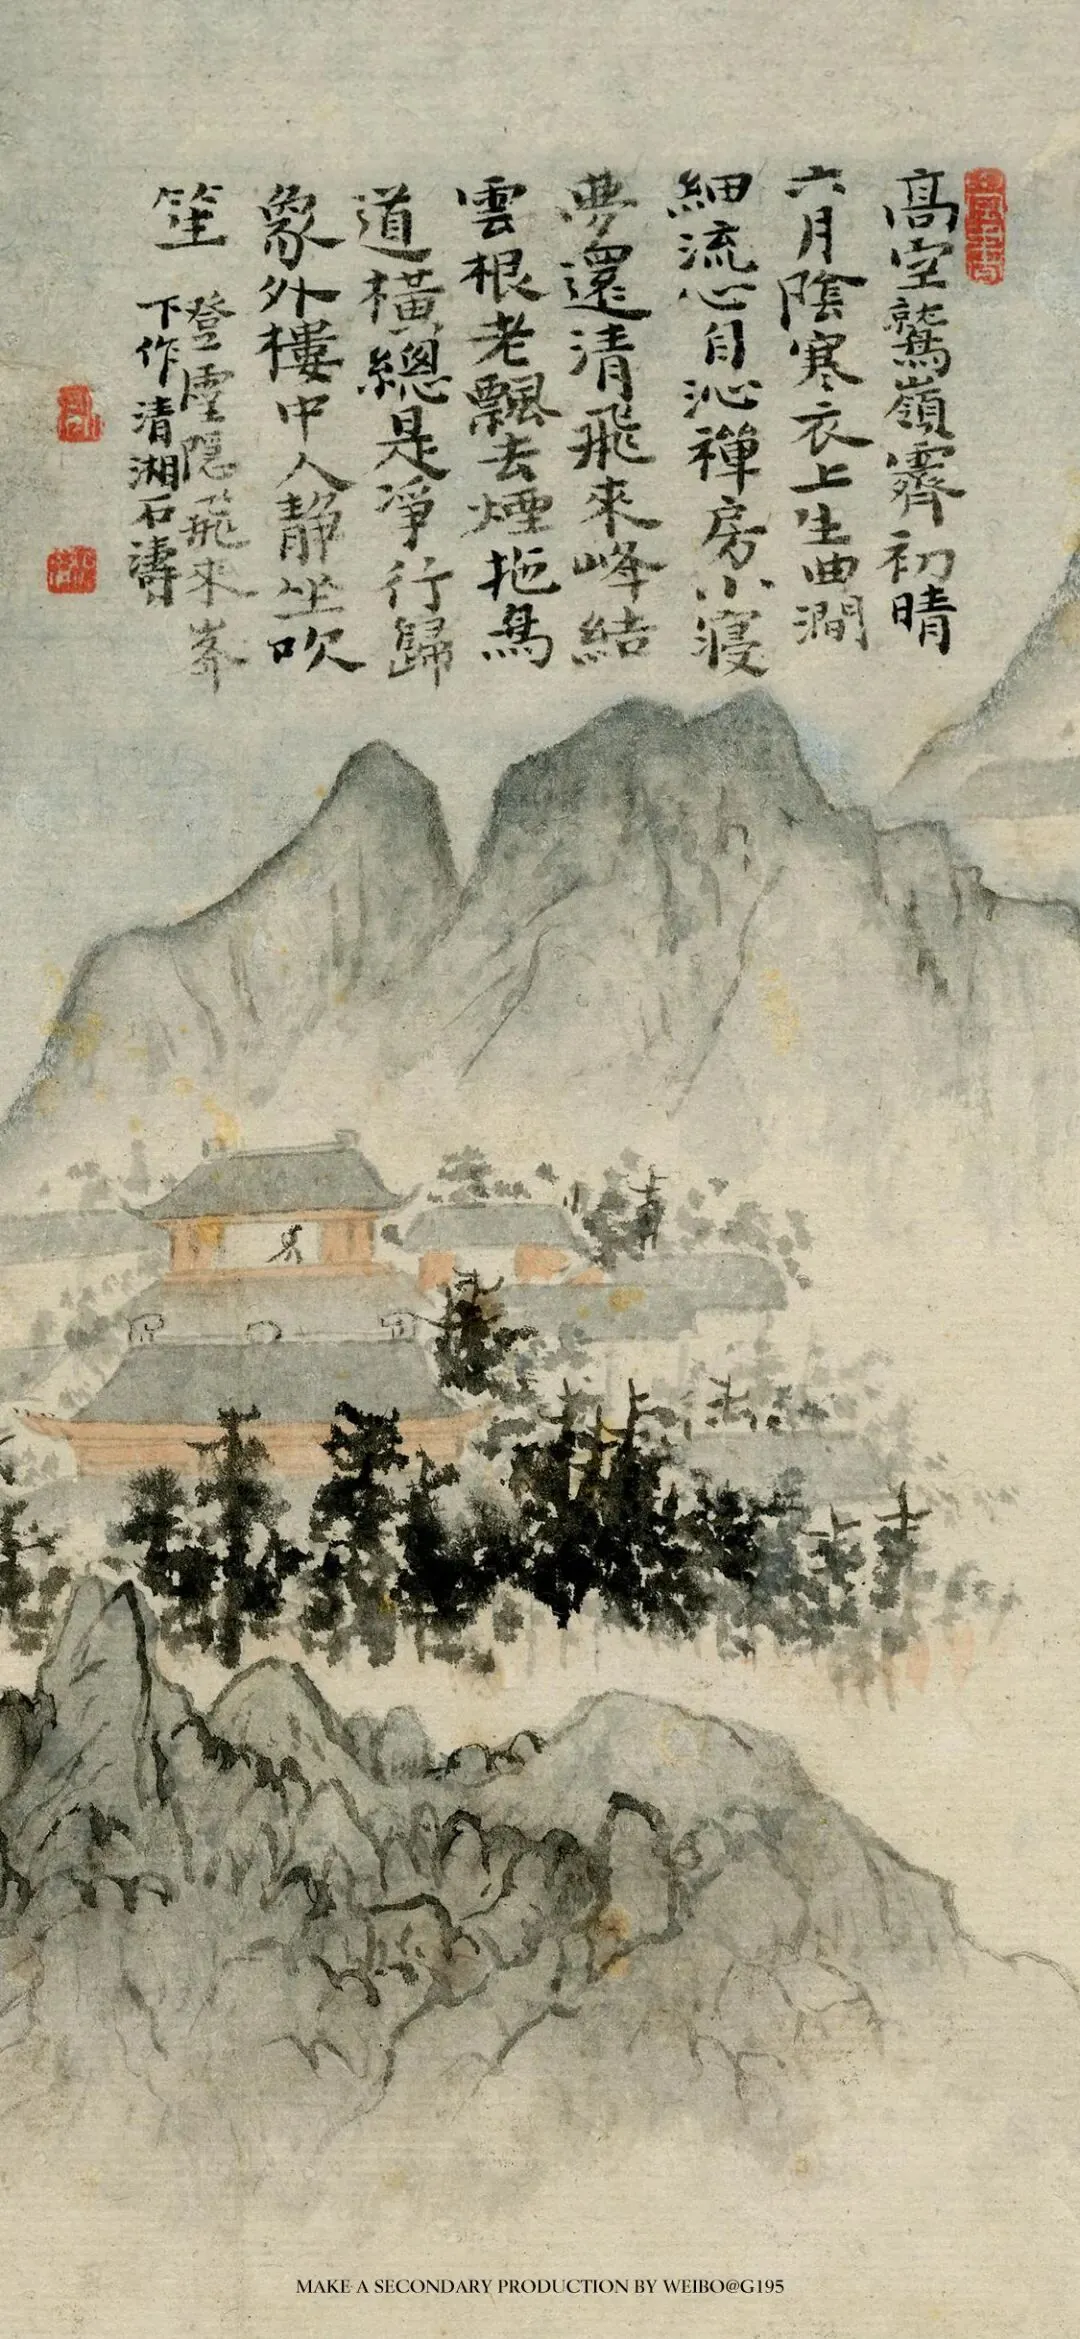 高空鷲嶺霽初晴
六月陰寒衣上生曲澗
細流心自沁禪房小寝
夢還清飛來峰結
雲根老飄去煙拖鳥
道橫總是淨行歸
象外樓中人靜坐吹
笙
登靈隱飛来峯
下作清湘石濤
MAKE A SECONDARY PRODUCTION BY WEIBO@G195